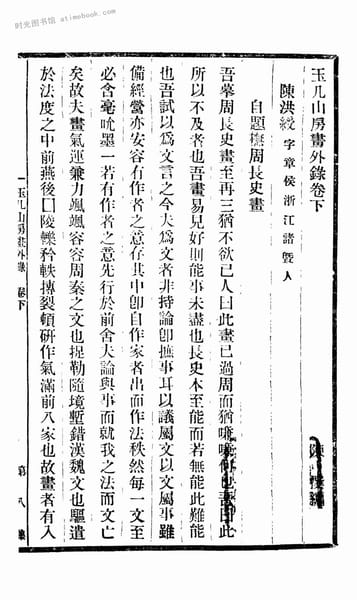 时光图书馆 atimebook.com
玉几山房畫外錄卷下
陳洪綬 字章侯浙江諸暨人
自題橅周長史畫
吾摹周長史畫至再三猶不欲已人曰此畫已過周而猶嗛嗛何也曰此
所以不及者也吾畫易見好則能事未盡也長史本至能而若無能此難能
也吾試以爲文言之今夫爲文者非持論卽摭事耳以議屬文以文屬事雖
備經營亦安容有作者之意存其中卽自作家者出而作法秩然每一文至
必含毫吮墨一若有作者之意先行於前舍夫論與事而就我之法而文亡
矣故夫畫氣運兼力颯颯容容周秦之文也捉勒隨境塹錯漢魏文也驅遣
於法度之中前燕後□陵轢矜軼摶裂頓斫作氣滿前八家也故畫者有入
玉几山房畫外錄 卷下
第八集